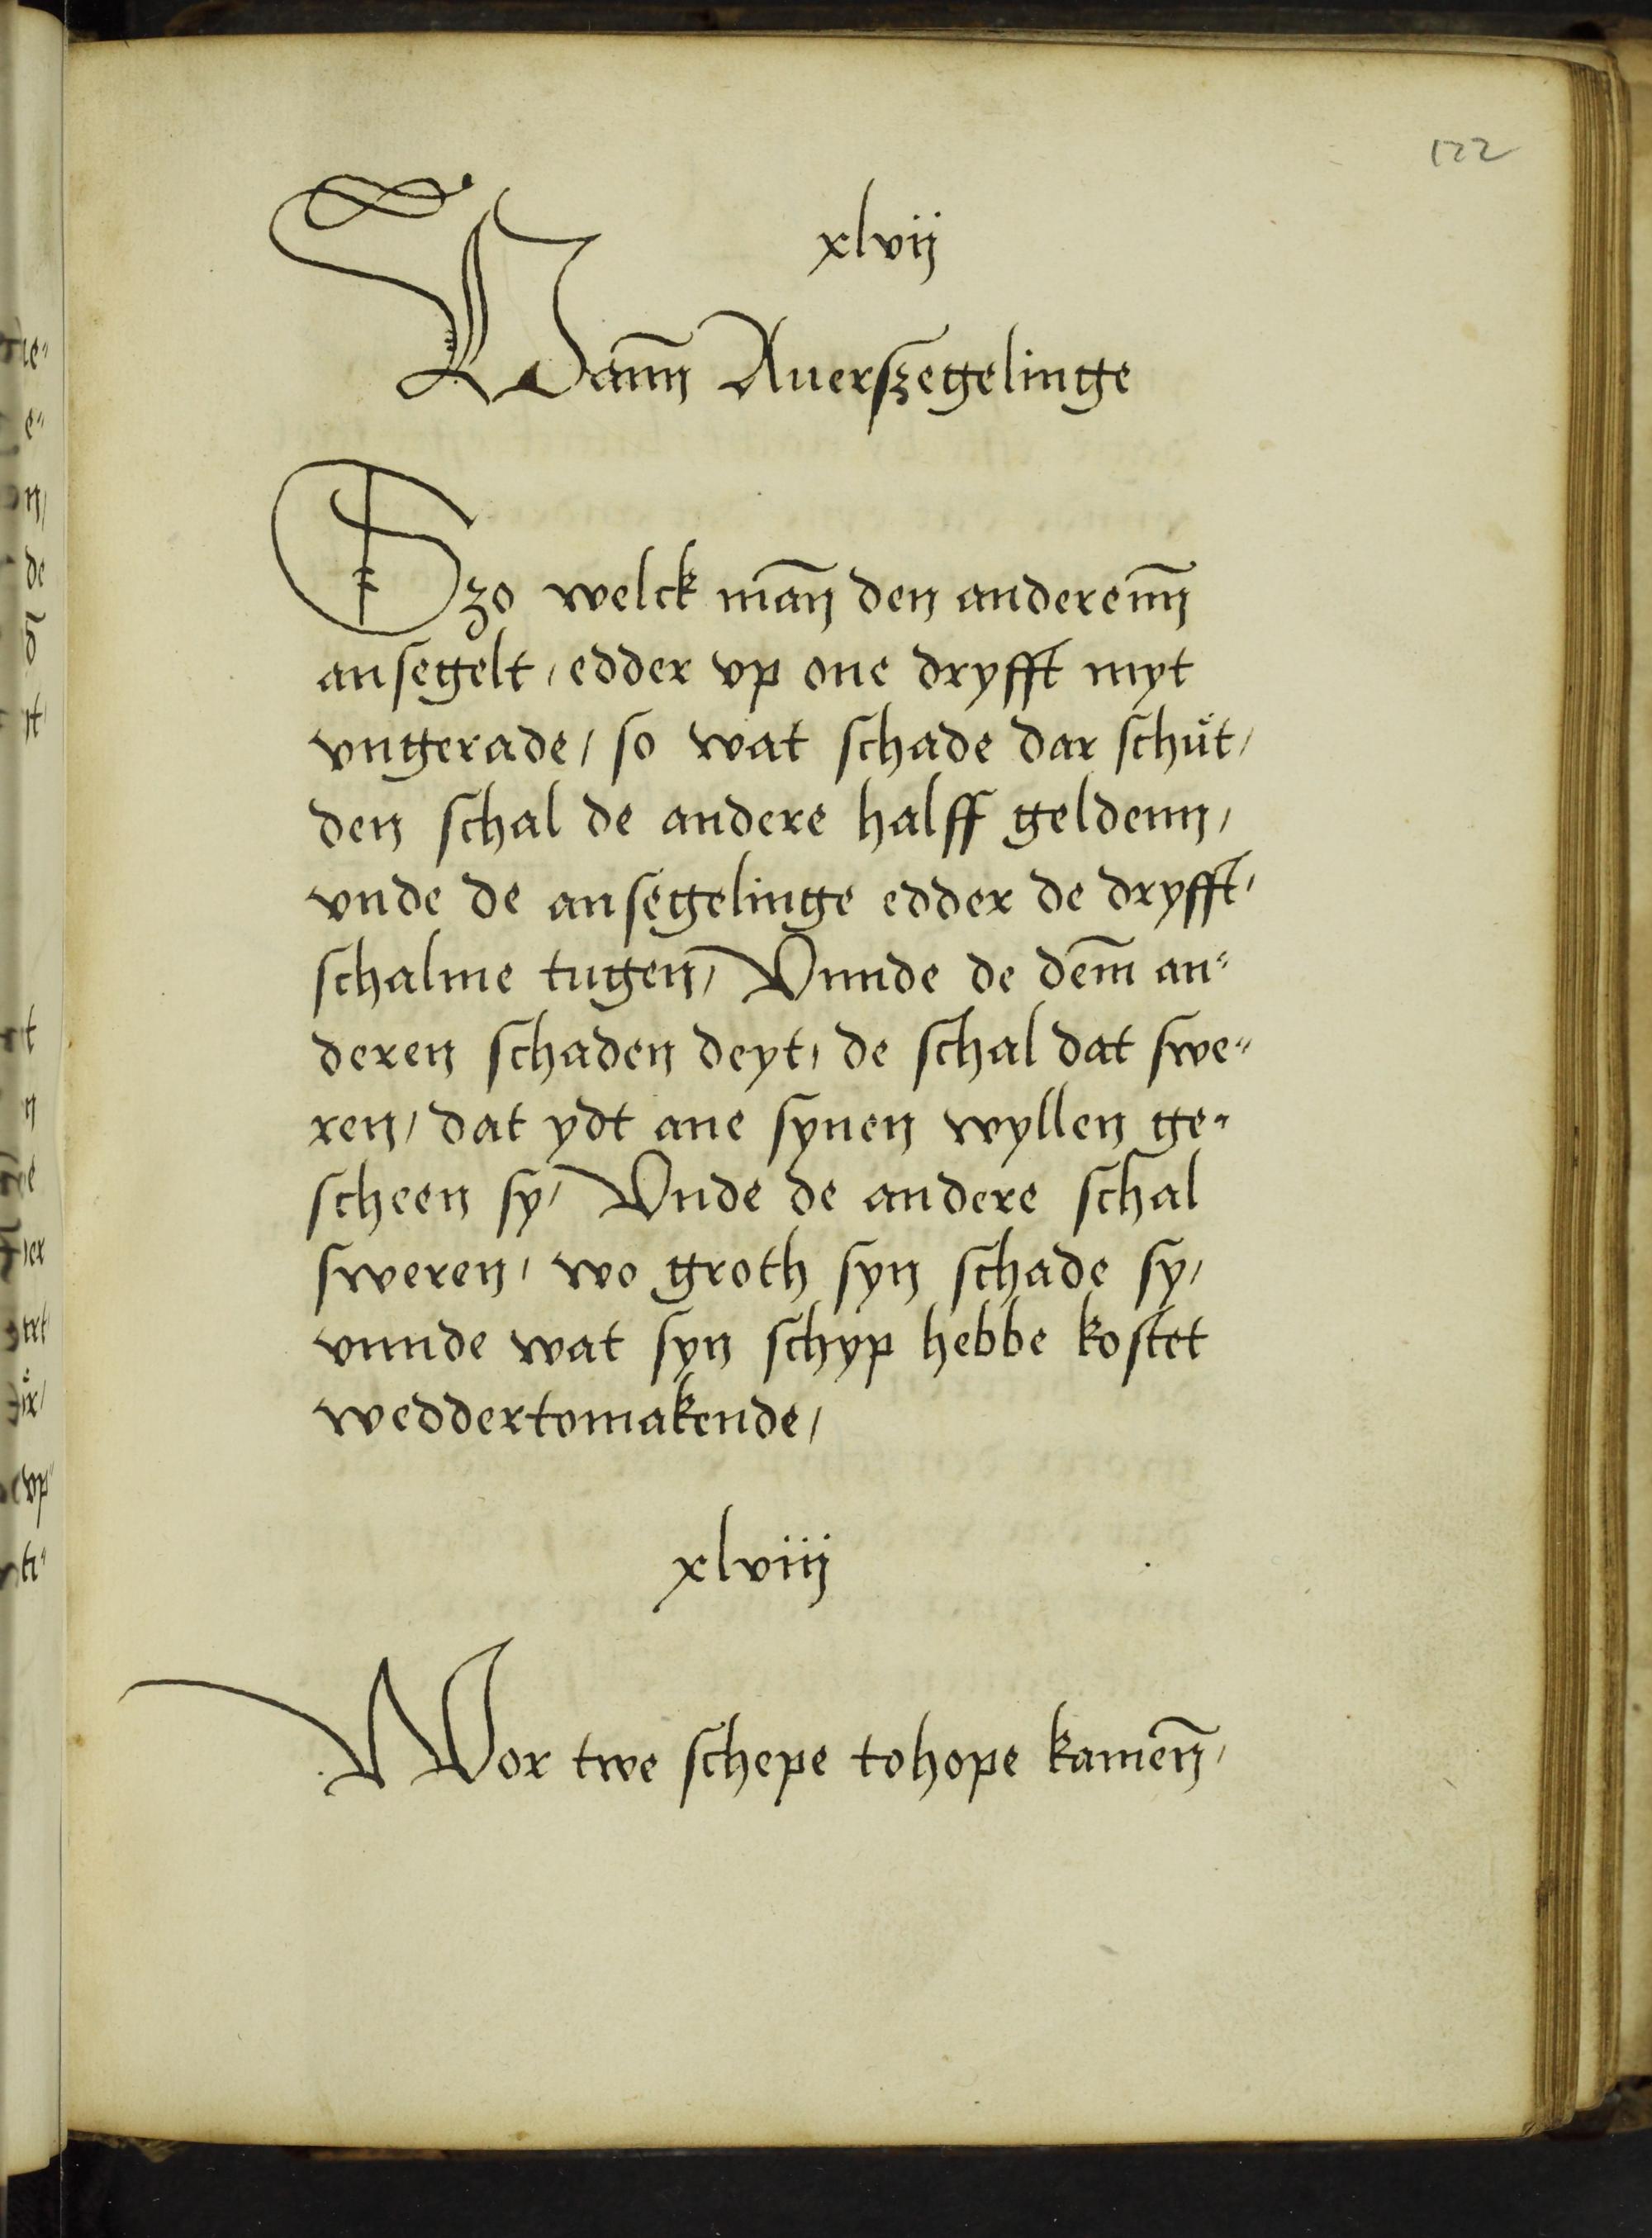 122
xlvij
Vann̄ Auerszegelinge
Szo welck mañ den anderenn̄
ansegelt, edder vp one dryfft myt
vngerade/ so wat schade dar schůt/
den schal de andere halff geldenn/
vnde de ansegelinge edder de dryfft/
schalme tugen/ Vnnde de dem̄ an-
deren schaden deyt, de schal dat swe-
ren/ dat ydt ane synen wyllen ge-
scheen sy/ Vnde de andere schal
sweren, wo groth syn schade sy/
vnnde wat syn schyp hebbe kostet
weddertomakende/
xlviij
Wor twe schepe tohope kamen̄/